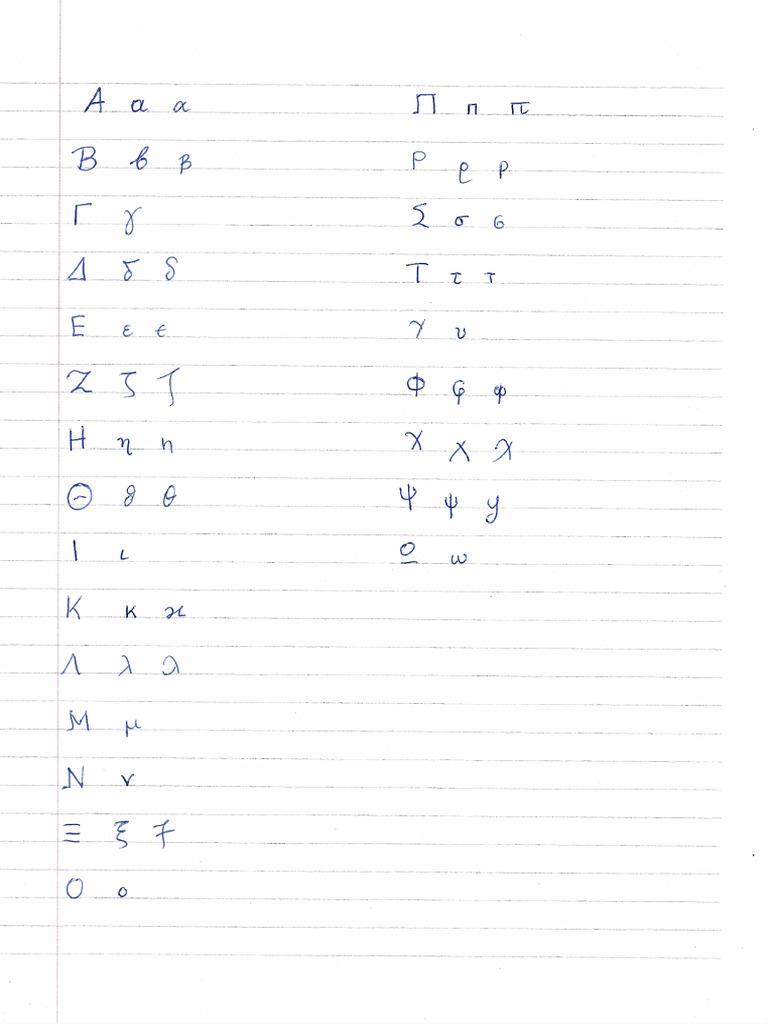 Α α α
Β β β
Γ γ
Δ δ δ
Ε ε ϵ
Ζ ζ ζ
Η η η
Θ ϑ θ
Ι ι
Κ κ ϰ
Λ λ λ
Μ μ
Ν ν
Ξ ξ ξ
Ο ο
Π π π
Ρ ρ ρ
Σ σ ϭ
Τ τ τ
Υ υ
Φ φ φ
Χ χ χ
Ψ ψ ψ
Ω ω